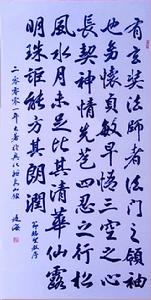 有玄奘法師者法門之領袖
也幼懷貞敏早悟三空之心
長契神情先苞四忍之行松
風水月未足比其清華仙露
明珠詎能方其朗潤 節臨聖教序